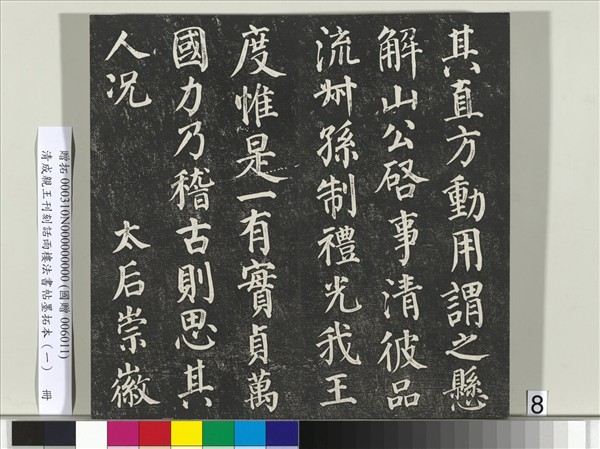 其直方動用謂之懸
解山公啓事清彼品
流叔孫制禮光我王
度惟是一有實貞萬
國力乃稽古則思其
人況 太后崇徽
贈拓 000310N000000000 (國贈 006011)
清成親王刊刻話雨樓法書帖墨拓本(一) 冊
8